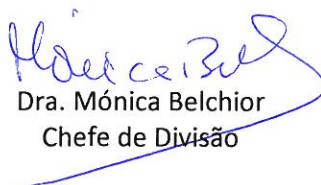 Mónica Bel
Dra. Mónica Belchior
Chefe de Divisão